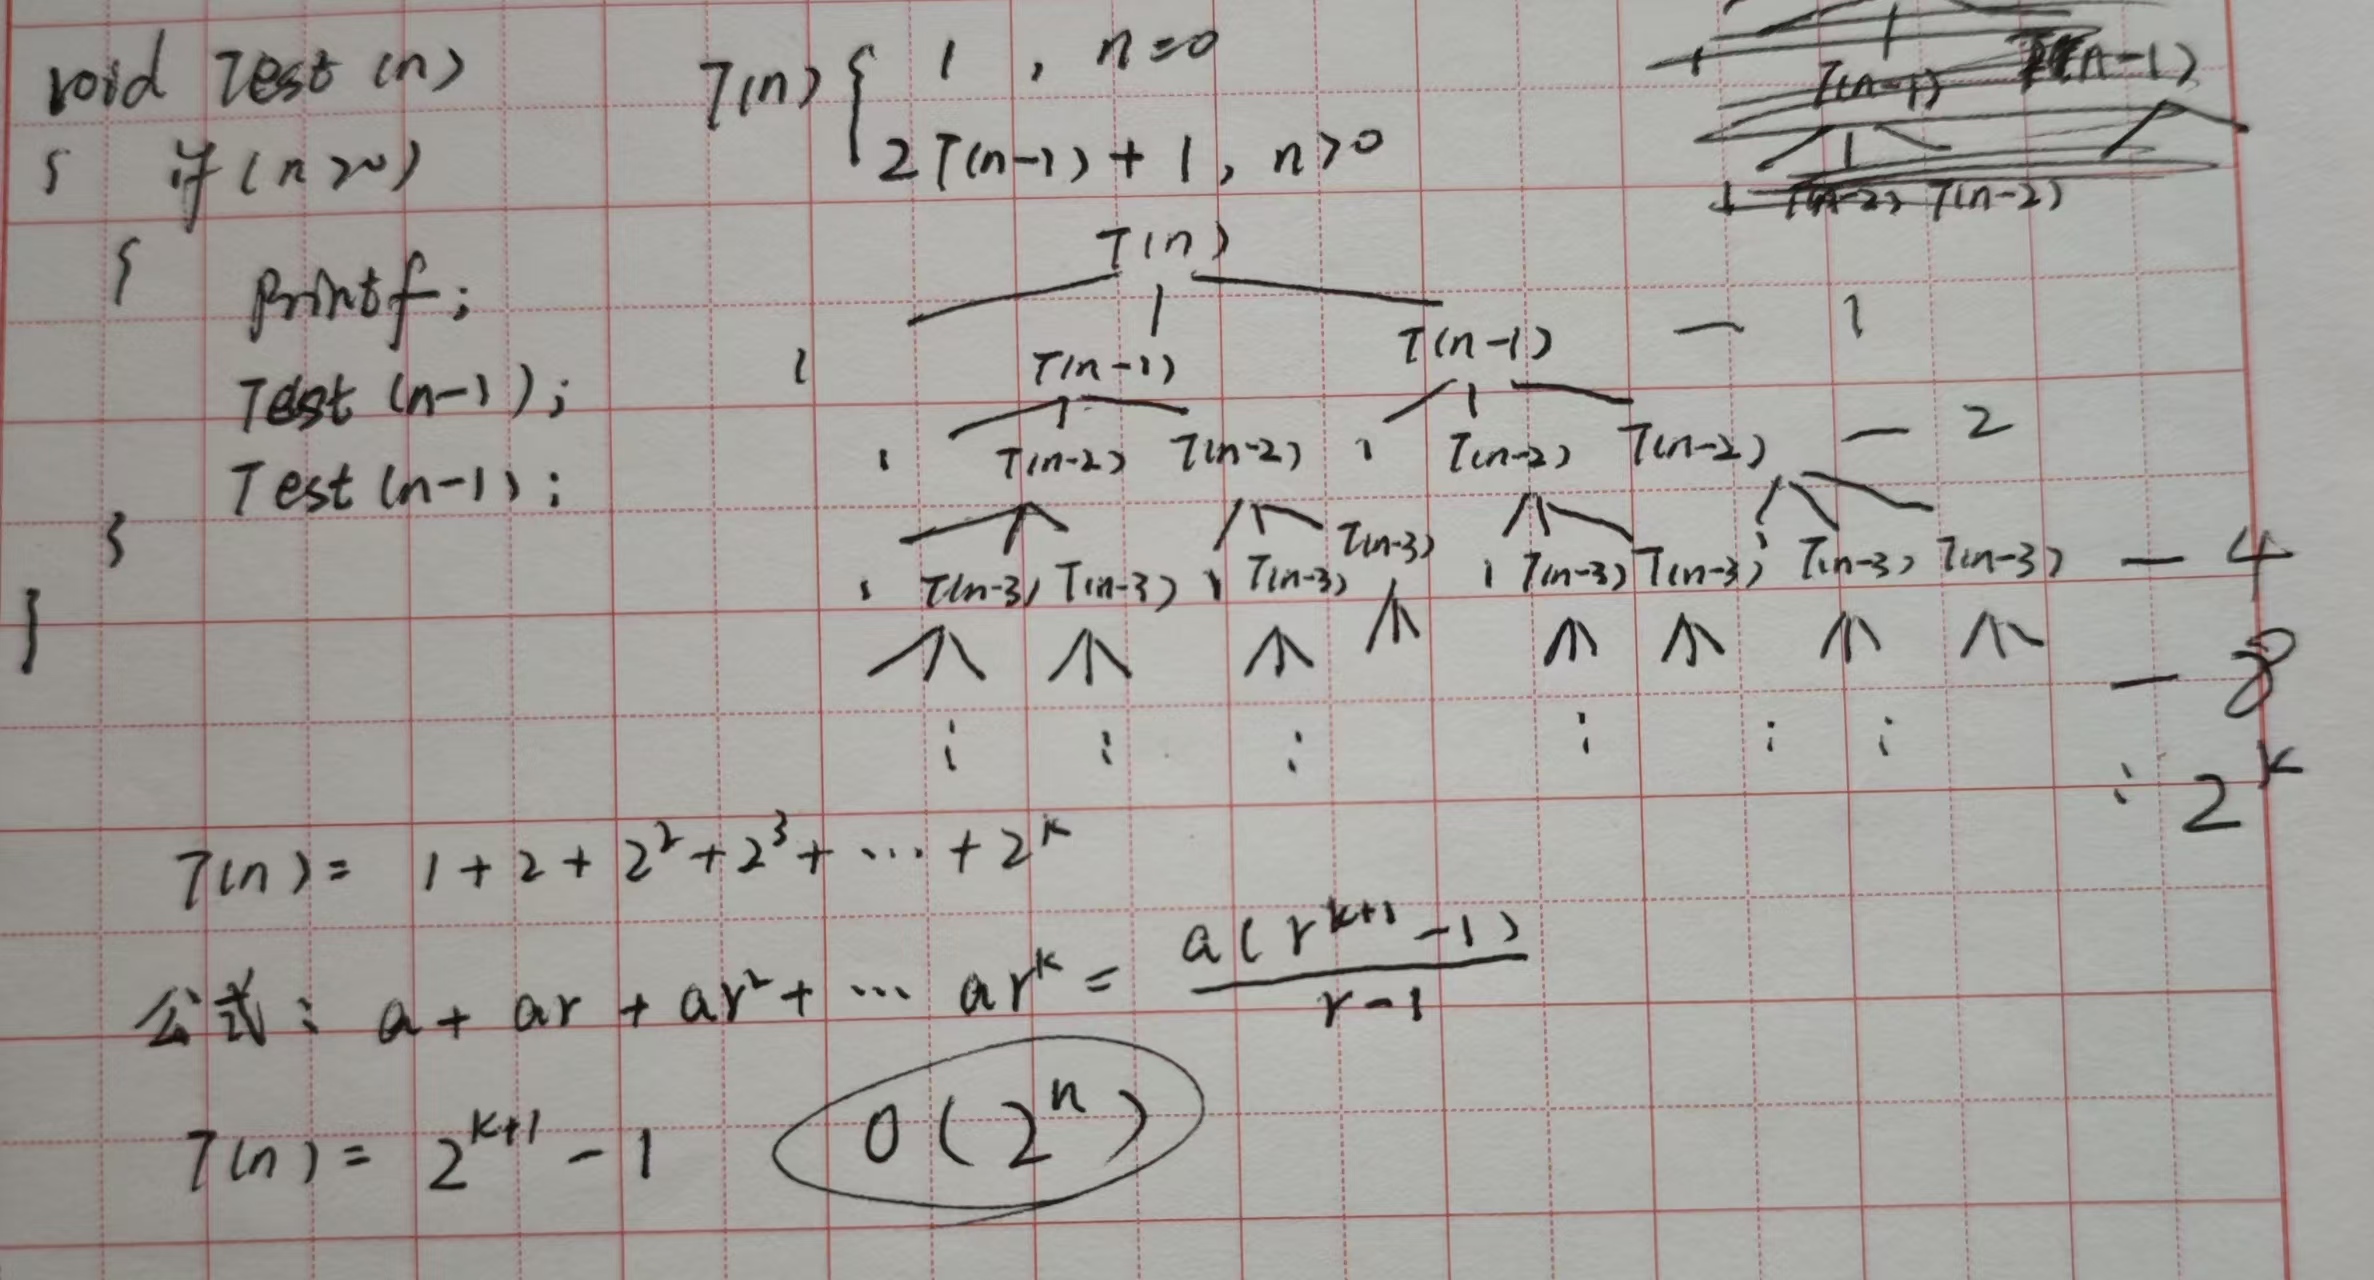 void Test (n)
{ if (n>0)
{
printf;
Test (n-1);
Test (n-1);
}
}
T(n) { 1 , n=0
2T(n-1) + 1, n>0
T(n-1) T(n-1)
1 T(n-2) T(n-2)
T(n)
1 T(n-1) T(n-1) — 1
1 T(n-2) T(n-2) 1 T(n-2) T(n-2) — 2
1 T(n-3) T(n-3) 1 T(n-3) T(n-3) 1 T(n-3) T(n-3) T(n-3) T(n-3) — 4
— 8
⋮ ⋮ ⋮ ⋮ ⋮ ⋮ ⋮ 2^k
T(n) = 1 + 2 + 2² + 2³ + ... + 2^k
公式: a + ar + ar² + ... ar^k = a(r^(k+1) -1) / r-1
T(n) = 2^(k+1) - 1 O(2^n)